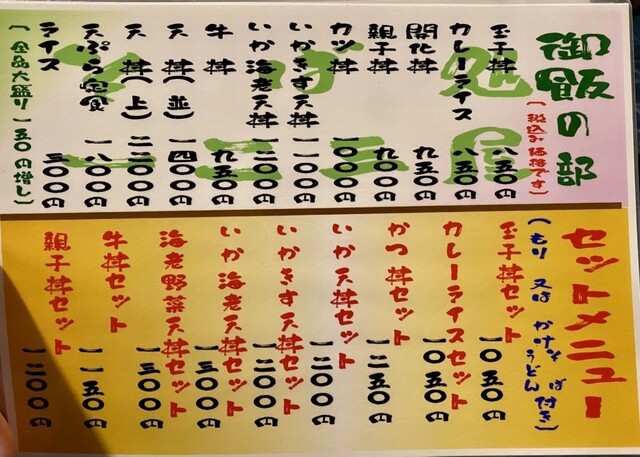 御飯の部
(税込み価格です)
玉子丼 八五〇円
カレーライス 八五〇円
開化丼 九五〇円
親子丼 九〇〇円
カツ丼 一〇〇〇円
いかきす天丼 一一〇〇円
いか海老天丼 一二〇〇円
牛丼 九五〇円
天丼(並) 一四〇〇円
天丼(上) 二二〇〇円
天ぷら定食 一八〇〇円
ライス 三〇〇円
(全品大盛り一五〇円増し)
セットメニュー
(もり又はかけそば付き)
うどん
玉子丼セット 一〇五〇円
カレーライスセット 一〇五〇円
かつ丼セット 一二五〇円
いか天丼セット 一二〇〇円
いかきす天丼セット 一二〇〇円
いか海老天丼セット 一三〇〇円
海老野菜天丼セット 一三〇〇円
牛丼セット 一一五〇円
親子丼セット 一二〇〇円